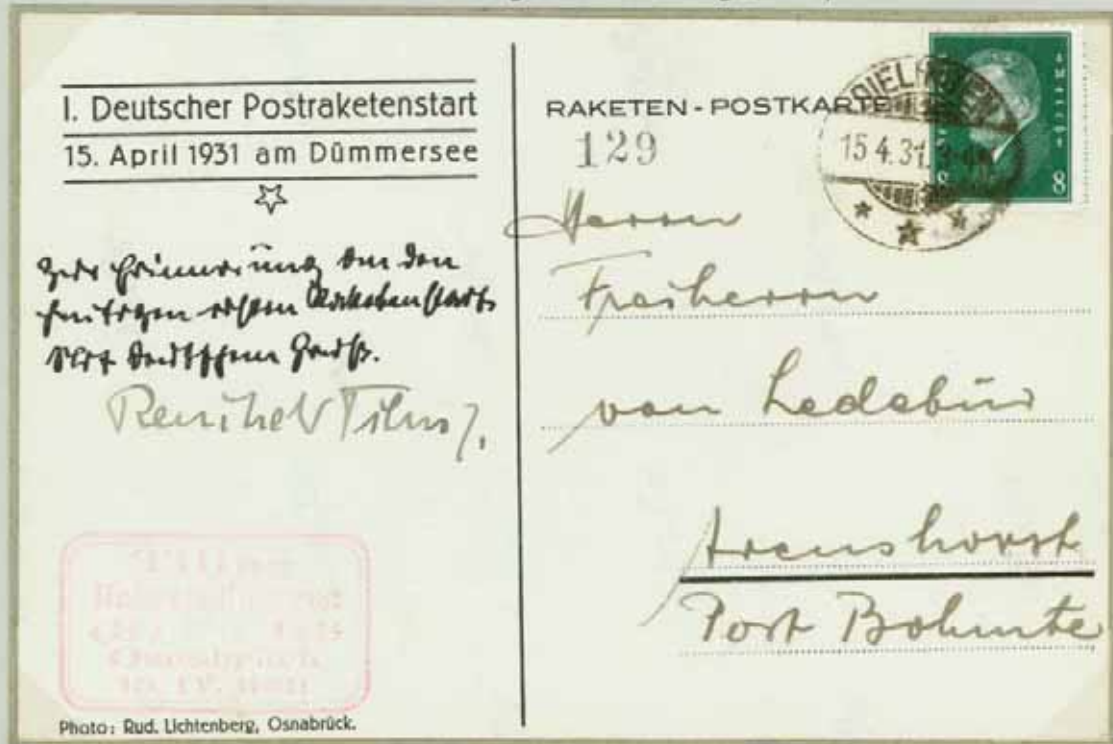 I. Deutscher Postraketenstart
15. April 1931 am Dümmersee
Zur Erinnerung an den
heutigen ersten Raketenstart
Mit deutschem Gruß.
Reinhold Tiling.
Photo: Rud. Lichtenberg, Osnabrück.
RAKETEN-POSTKARTE
129
DIELINGEN
15.4.31.
8
Herrn
Freiherrn
von Ledebur
Arenshorst
Post Bohmte